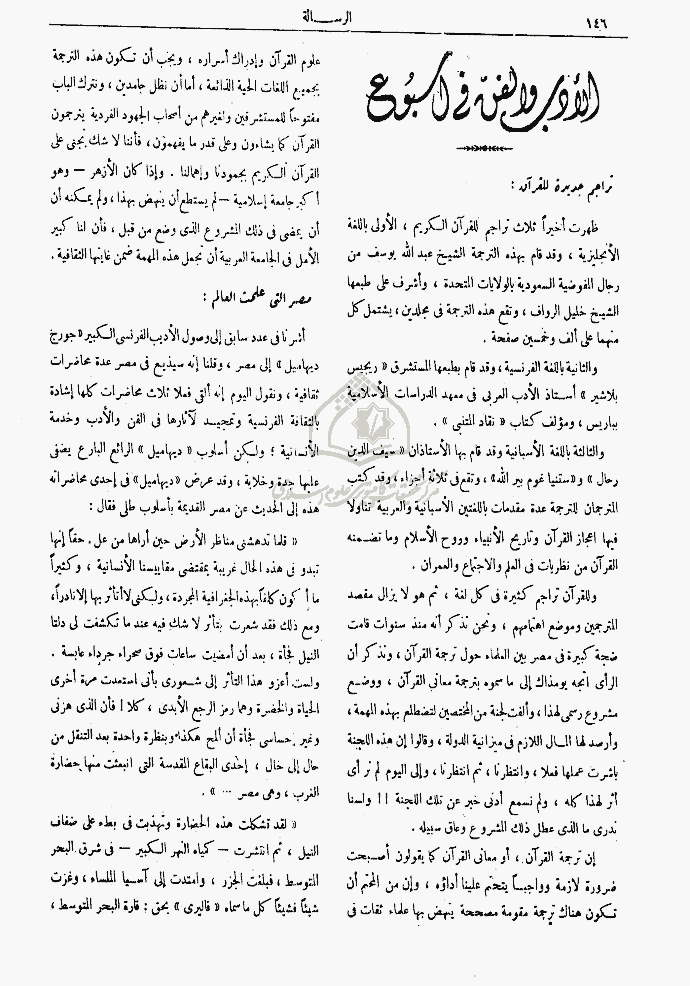 ١٤٦
الرسالة
الأدب والفن في أسبوع
تراجم جديدة للقرآن :
ظهرت أخيراً ثلاث تراجم للقرآن الكريم ، الأولى باللغة
الأنجليزية ، وقد قام بهذه الترجمة الشيخ عبد الله يوسف من
رجال المفوضية السعودية بالولايات المتحدة ، وأشرف على طبعها
الشيخ خليل الرواف ، وتقع هذه الترجمة في مجلدين ، يشتمل كل
منهما على ألف وخمسين صفحة .
والثانية باللغة الفرنسية ، وقد قام بطبعها المستشرق « ريجيس
بلاشير » أستاذ الأدب العربى فى معهد الدراسات الأسلامية
بباريس ، ومؤلف كتاب « نقاد المتنبي » .
والثالثة باللغة الأسبانية وقد قام بها الأستاذان « سيف الدين
رحال » و « سنتيا غوم بير الله » ، وتقع فى ثلاثة أجزاء ، وقد كتب
المترجمان للترجمة عدة مقدمات باللغتين الأسبانية والعربية تناولا
فيها اعجاز القرآن وتاريخ الأنبياء وروح الأسلام وما تضمنه
القرآن من نظريات فى العلم والاجتماع والعمران .
وللقرآن تراجم كثيرة فى كل لغة ، ثم هو لا يزال مقصد
المترجمين وموضع اهتمامهم ، ونحن نذكر أنه منذ سنوات قامت
ضجة كبيرة فى مصر بين العلماء حول ترجمة القرآن ، ونذكر أن
الرأى اتجه يومذاك إلى ما سموه بترجمة معانى القرآن ، ووضع
مشروع رسمى لهذا ، وألفت لجنة من المختصين لتضطلع بهذه المهمة ،
وأرصد لها المال اللازم فى ميزانية الدولة ، وقالوا إن هذه اللجنة
باشرت عملها فعلا ، وانتظرنا ، ثم انتظرنا ، وإلى اليوم لم نر أى
أثر لهذا كله ، ولم نسمع أدنى خبر عن تلك اللجنة !! ولسنا
ندرى ما الذى عطل ذلك المشروع وعاق سبيله .
إن ترجمة القرآن ، أو معانى القرآن كما يقولون أصبحت
ضرورة لازمة وواجباً يتحتم علينا أداؤه ، وإن من المحتم أن
تكون هناك ترجمة مقومة مصححة ينهض بها علماء ثقات فى
علوم القرآن وإدراك أسراره ، ويجب أن تكون هذه الترجمة
بجميع اللغات الحية الذائعة ، أما أن نظل جامدين ، ونترك الباب
مفتوحاً للمستشرقين وغيرهم من أصحاب الجهود الفردية يترجمون
القرآن كما يشاءون وعلى قدر ما يفهمون ، فأننا لا شك نجنى على
القرآن الكريم بجمودنا وإهمالنا . وإذا كان الأزهر — وهو
أكبر جامعة إسلامية — لم يستطع أن ينهض بهذا ، ولم يمكنه أن
أن يمضى فى ذلك المشروع الذى وضع من قبل ، فأن لنا كبير
الأمل فى الجامعة العربية أن تجعل هذه المهمة ضمن غايتها الثقافية .
مصر التى علمت العالم :
أشرنا فى عدد سابق إلى وصول الأديب الفرنسى الكبير « جورج
ديهاميل » إلى مصر ، وقلنا إنه سيذيع فى مصر عدة محاضرات
ثقافية ، ونقول اليوم إنه ألقى فعلا ثلاث محاضرات كلها إشادة
بالثقافة الفرنسية وتمجيد لآثارها فى الفن والأدب وخدمة
الأنسانية ؛ ولكن أسلوب « ديهاميل » الرائع البارع يضفى
عليها جدة وخلابة ، وقد عرض « ديهاميل » فى إحدى محاضراته
هذه إلى الحديث عن مصر القديمة بأسلوب طلى فقال :
« قلما تدهشنى مناظر الأرض حين أراها من عل . حقاً إنها
تبدو فى هذه الحال غريبة بمقتضى مقاييسنا الأنسانية ، وكثيراً
ما أكون كلفاً بهذه الجغرافية المجردة ، ولكنى لا أتأثر بها إلا نادراً ،
ومع ذلك فقد شعرت بتأثر لا شك فيه عند ما تكشفت لى دلتا
النيل فجأة ، بعد أن أمضيت ساعات فوق صحراء جرداء عابسة .
ولست أعزو هذا التأثر إلى شعورى بأنى استعدت مرة أخرى
الحياة والخضرة وهما رمز الرجع الأبدى ، كلا ! فأن الذى هزنى
وغير إحساسى فجأة أن ألمح هكذا وبنظرة واحدة بعد التنقل من
حال إلى حال ، إحدى البقاع المقدسة التى انبعثت منها حضارة
الغرب ، وهى مصر ... » .
« لقد تشكلت هذه الحضارة وتهذبت فى بطء على ضفاف
النيل ، ثم انتشرت — كمياه النهر الكبير — فى شرق البحر
المتوسط ، فبلغت الجزر ، وامتدت إلى آسيا الملساء ، وغزت
شيئاً فشيئاً كل ما سماه « فاليرى » بحق : قارة البحر المتوسط ،